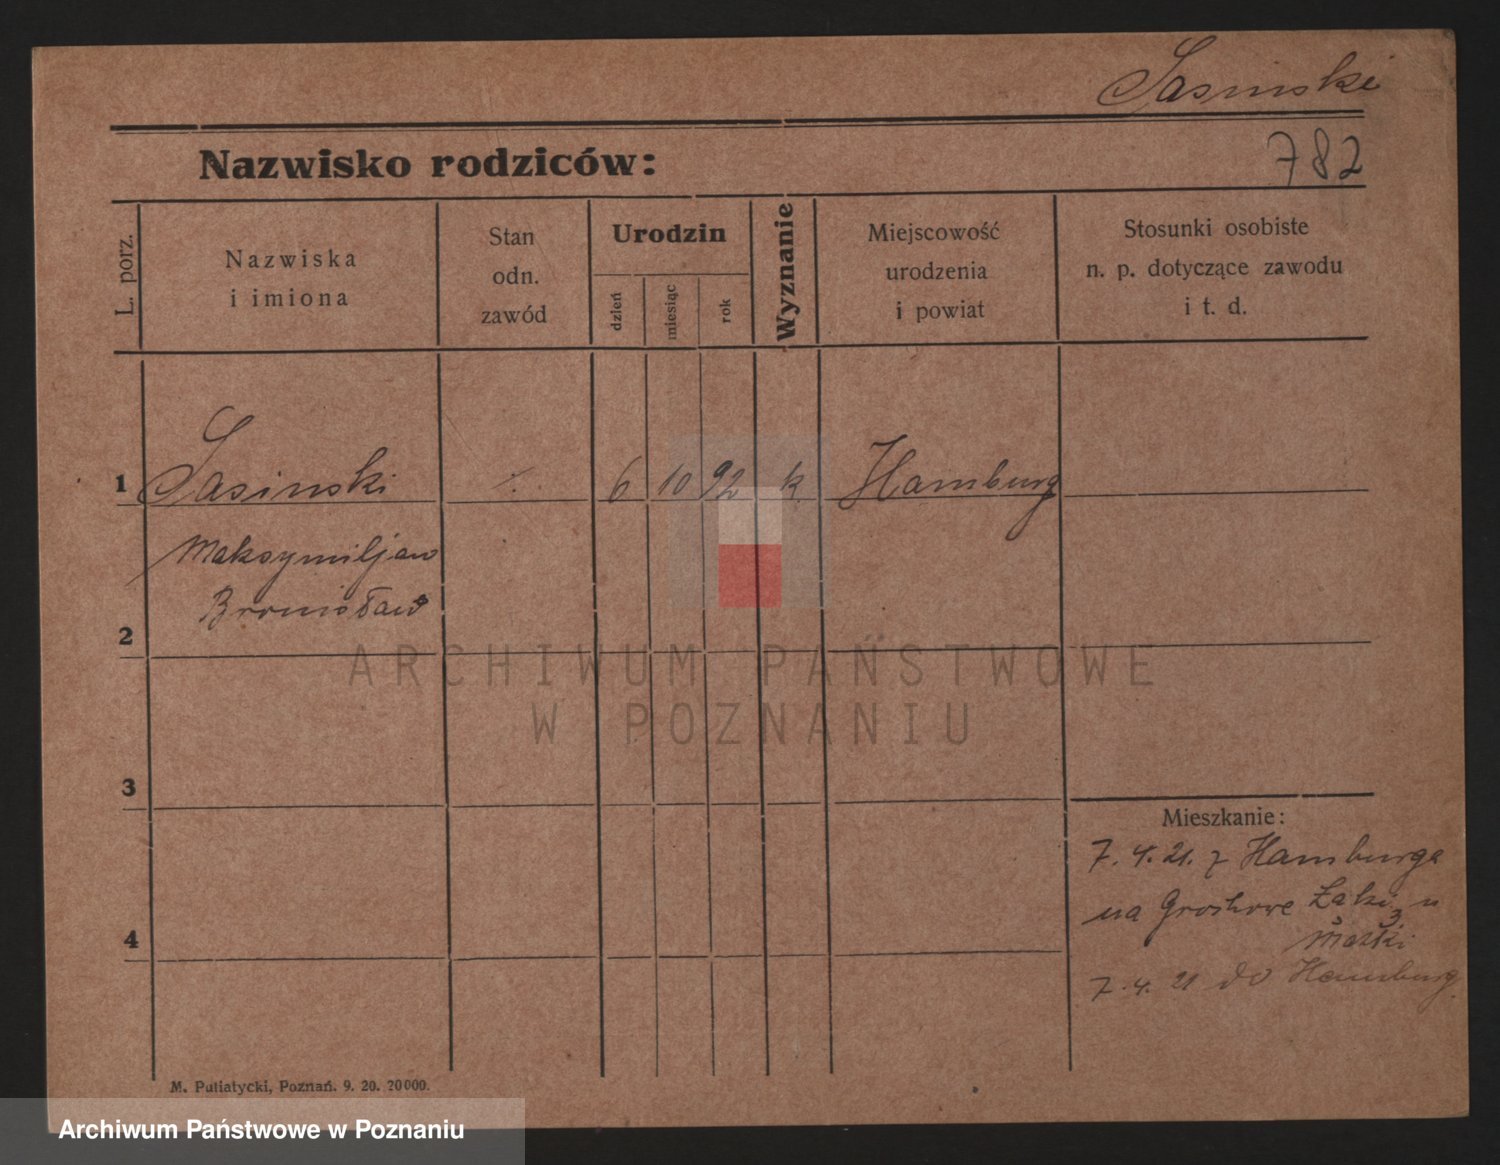 Sasinski
Nazwisko rodziców:
782
L. porz.
Nazwiska
i imiona
Stan
odn.
zawód
Urodzin
dzień
miesiąc
rok
Wyznanie
Miejscowość
urodzenia
i powiat
Stosunki osobiste
n. p. dotyczące zawodu
i t. d.
1 Sasinski 6 10 92 k. Hamburg
Maksymiljan
Bronisław
2
ARCHIWUM PAŃSTWOWE
W POZNANIU
3
Mieszkanie:
7. 4. 21. z Hamburga
na Grochowe Łąki u
3
Matki
4
7. 4. 21 do Hamburg.
M. Putiatycki, Poznań. 9. 20. 20000.
Archiwum Państwowe w Poznaniu